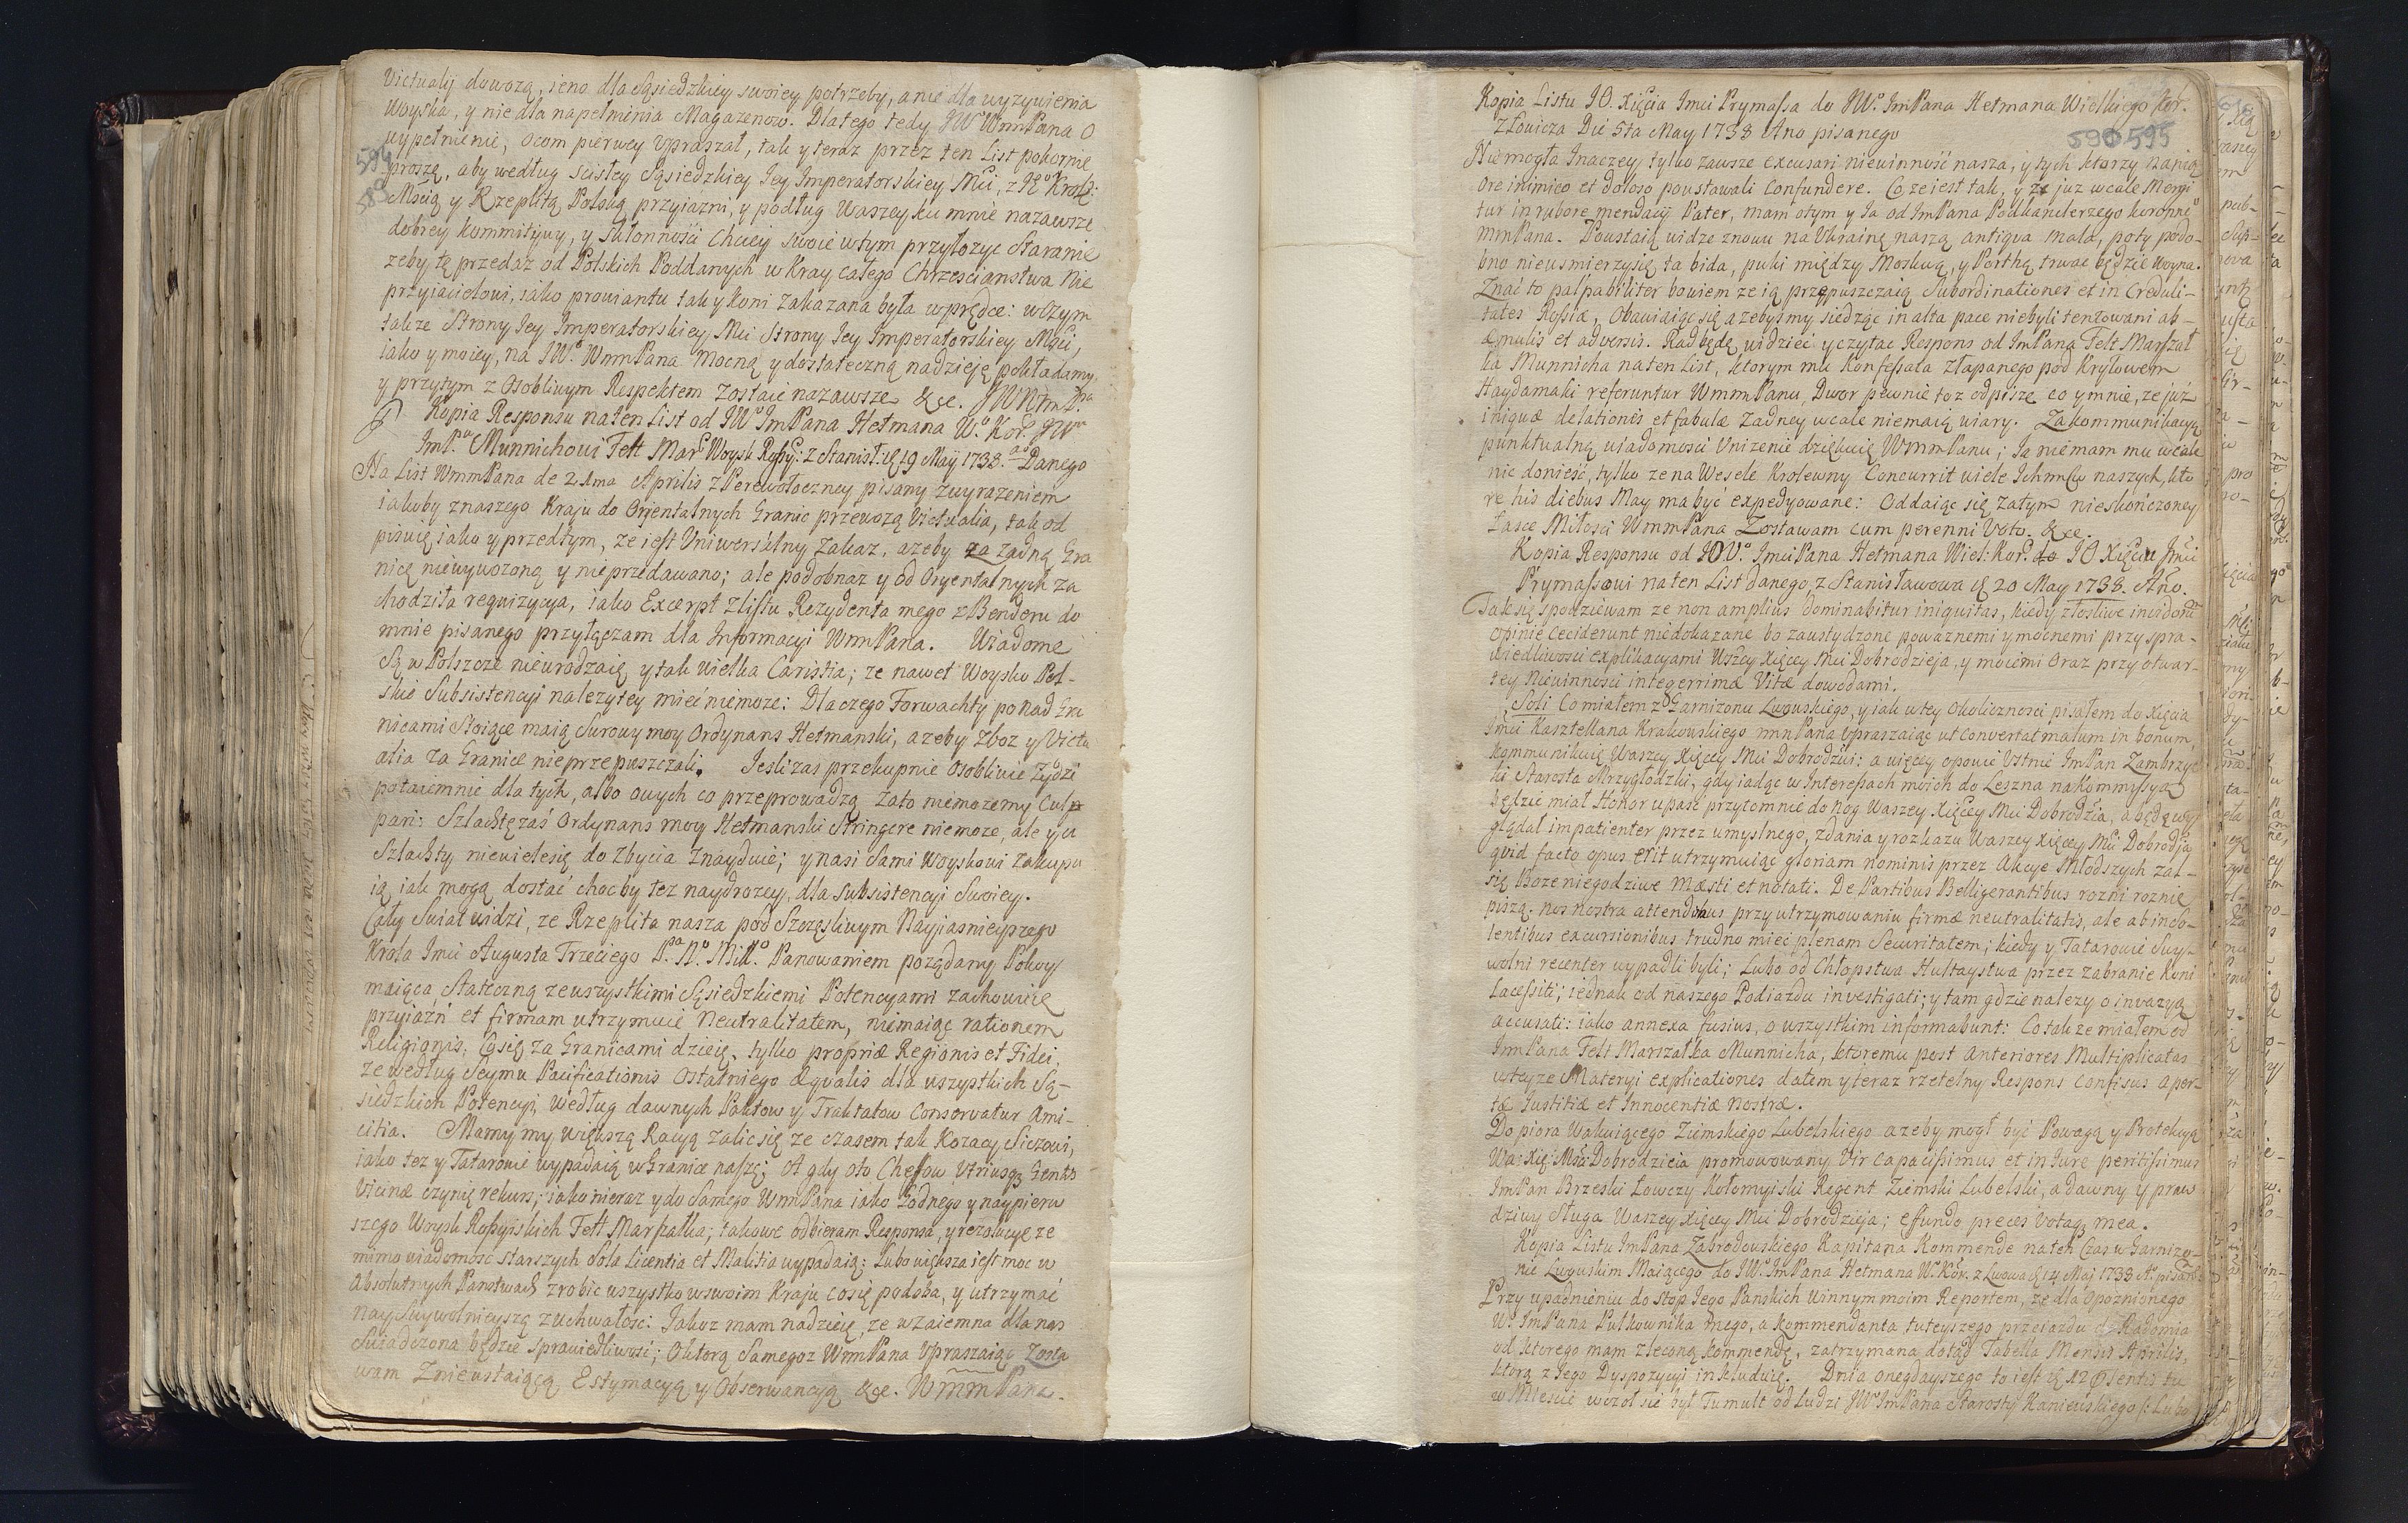 Victualij dowozą, jeno dla Sąsiedzkiey swoiey potrzeby, a nie dla wyzywienia
Woyska, y nie dla napełnienia Magazenow. Dlatego tedy JWo WmmPana O
wypełnienie, ocom pierwey vpraszał, tak y teraz przez ten List pokornie
594
proszą, aby według scisłey Sąsiedzkiey Jey Imperatorskiey Mci, z Krol:
589
Mscią y Rzeplitą Polską przyiazni, y podług Waszey ku mnie nazawsze
dobrey kommitywy, y skłonności chciey swoie wtym przyłozyc Staranie
zeby tę przedaz od Polskich Poddanych w Kray całego Chrzescianstwa Nie
przyiacielowi, iako prowiantu tak y koni zakazana była wprędce: wczym
takze Strony Jey Imperatorskiey Mci Strony Jey Imperatorskiey Mści,
iako y moiey, na JWo. WmmPana Mocną y dostateczną nadzieję pokładamy,
y przytym z Osobliwym Respektem Zostaie nazawsze &ce. JWWmPna
Kopia Responsu na ten List od JWo ImPana Hetmana Wo. Kor. JWu
ImPu Munnichowi Felt Mar Woysk Roszy: z Stanisł: 19 Maij 1738. Ao Danego
Na List WmmPana de 21ma Aprilis z Perewołoczney pisany zwyrazeniem
iakoby znaszego Kraju do Orjentalnych Granic przewozą Victualia, tak od
pisuię iako y przedtym, ze iest Uniwersalny zakaz, azeby za zadną Gra
nicę niewywozoną y nieprzedawano; ale podobnaz y od Oryentalnych za
chodziła requizycya, iako Excerpt z listu Rezydenta mego z Benderu do
mnie pisanego przyłączam dla Informacyi WmPana. Wiadome
Są w Polszcze nieurodzaię y tak wielka Caristia; ze nawet Woysko Pol-
skie Subsistencyi nalezytey mieć niemoze: Dlaczego Forwachty ponad Gra
nicami Stoiące maią Surowy moy Ordynans Hetmanski, azeby Zboz y Victu
alia za Granicę nieprzepuszczali. Jesli zas przekupnie Osobliwie Zydzi
potaiemnie dla tych, albo owych co przeprowadzą Zato niemozemy Culp
pari: Szlachtę zaś Ordynans moy Hetmanski Stringere niemoze, ale y u
Szlachty niewielesię do Zbycia Znayduie; y nasi Sami Woyskowi Zakupu
ią iak mogą dostać choćby tez naydrozey, dla Subsistencyi Swoiey.
Cały Swiat widzi, ze Rzeplita nasza pod Szczęsliwym Nayiasnieyszego
Krola Jmci Augusta Trzeciego Pa. No. Miło. Panowaniem poządany Pokoy
maiąca, Stateczną zewszystkimi Sąsiedzkiemi Potencyami zachowuię
przyiaźń et firmam utrzymuie Neutralitatem, niemaiąc rationem
Religionis, Cosię za Granicami dzieię, tylko propriæ Regionis et Fidei,
ze według Seymu Pacificationis Ostatniego Æqualis dla wszystkich Są-
siedzkich Potencyi, według dawnych Paktow y Traktatow Conservatur Ami-
citia. Mamy my większą Racyą zalic się ze czasem tak Kozacy Siczowi,
iako tez y Tatarowie wypadaią w Granice naszę; A gdy oto Cheffow Vtriusq Gentis
Vicinæ czynię rekurs; iako nieraz y do Samego WmPana iako Godnego y naypierw
szego Woysk Rossyiskich Felt Marszałka; takowe odbieram Responsa, y rezolucye ze
mimo wiadomosc Starszych Sola Licentia et Malitia wypadaią; Lubo większa iest moc w
Absolutnych Panstwach zrobic wszystko wswoim Kraju cosię podoba, y utrzymać
nay Swywolnieyszą zuchwałosc: Jakoz mam nadzieię, ze wzaiemna dla nas
Swiadczona będzie Sprawiedliwość; Oktorą Samegoz WmPana Vpraszaiąc Zosta
wam Znieustaiącą Estymacyą y Obserwancyą &ce. WmmPana.
Kopia Listu JO. Xięcia Jmci Prymassa do JWo. ImPana Hetmana Wielkiego Kor.
z Łowicza Die 5ta May 1738 Ano pisanego
590 595
Niemogła Inaczey tylko zawsze excusari niewinność nasza, y tych ktorzy nanią
ore inimico et doloso powstawali Confundere. Co ze iest tak, y ze juz wcale Mergi
tur in rubore mendacij Pater, mam otym y Ja od ImPana Podkanclerzego koronno
mmPana. Powstaią widze znowu na Vkrainę naszą antiqua mala, poty podo-
bno nieusmierzysię ta bida, puki między Moskwą, y Porthą trwac będzie Woyna.
Znać to palpabiliter bowiem ze ią przepuszczaią Subordinationes et in Creduli-
tates Rossiæ, Obawiaiąc się azebysmy siedząc in alta pace niebyli tentowani ab-
Æmulis et adversis. Rad będę widzieć y czytac Respons od ImPana Felt Marszał
ka Munnicha na ten List, ktorym mu Konfessata Złapanego pod Kryłowem
Haydamaki referuntur WmmPanu, Dwor pewnie toz odpisze co y mnie, ze juz
iniquæ delationes et fabulæ Zadney wcale niemaią wiary. Zakommunikacyą
punktualną wiadomosci Vnizenie dziękuię WmmPanu; Ja niemam mu wcale
nic donieść, tylko ze na Wesele Krolewny Concurrit wiele Ichmćw naszych, kto
re his diebus May ma być expedyowane: Oddaiąc się Zatym nieskończoney
Łasce Miłosci WmmPana Zostawam cum perenni Voto. &ce.
Kopia Responsu od JOVo. JmciPana Hetmana Wiel: Kor. do JO Xięcia Jmci
Prymassowi na ten List danego z Stanisławowa 20 May 1738. Ano.
Taksię spodziewam ze non amplius dominabitur iniquitas, kiedy złosliwe invidorum
opinie ceciderunt niedokazane bo zawstydzone powaznemi y mocnemi przy spra-
wiedliwosci explikacyami Wszey Xięcey Mci Dobrodzieja, y moiemi Oraz przy otwar-
tey Niewinnosci integerrimæ Vitæ dowodami.
Soli Co miałem z Garnizonu Lwowskiego, y iak w tey Okolicznosci pisałem do Xięcia
Jmci Kasztellana Krakowskiego mmPana Vpraszaiąc ut convertat malum in bonum,
Kommunikuię Waszey Xięcey Mci Dobrodziei: a więcey opowie Vstnie ImPan Zambrzyc
ki Starosta Mrzygłodzki, gdy iadąc w Interessach moich do Leszna na Kommissyą
będzie miał Honor upaść przytomnie do nog Waszey Xięcey Mci Dobrodzia, a będę wy
glądał impatienter przez umyslnego, zdania y rozkazu Waszey Xięcey Mci Dobrodzja
quid facto opus erit utrzymuiąc gloriam nominis przez Akcye Młodszych zal-
się Boze niegodziwe Mæsti et notati. De Partibus Belligerantibus rozni roznie
piszą. nos nostra attendimus przy utrzymowaniu firmæ neutralitatis, ale ab inco-
lentibus excursionibus trudno mieć plenam Securitatem; kiedy y Tatarowie Swy-
wolni recenter wypadli byli; Lubo od Chłopstwa Hultaystwa przez zabranie Koni
Lacessiti; iednak od naszego Podiazdu investigati; y tam gdzie nalezy o inwazyą
accusati: iako annexa fusius, o wszystkim informabunt: Co takze miałem od
ImPana Felt Marszałka Munnicha, ktoremu post anteriores Multiplicatas
wteyze Materyi explicationes dałem y teraz rzetelny Respons Confisus aper-
tæ Justitiæ et Innocentiæ Nostræ.
Do piora Wakuiącego Ziemskiego Lubelskiego azeby mogł być Powagą y Protekcyą
Wa: Xię: Mści Dobrodzieia promowowany Vir Capacissimus et in Jure peritissimus
ImPan Brzeski Łowczy Kołomyiski Regent Ziemski Lubelski, a dawny y praw
dziwy Sługa Waszey Xięcey Mci Dobrodzieja; effundo preces Votaq mea.
Kopia Listu ImPana Zabrodowskiego Kapitana Kommendę na ten Czas w Garnizo-
nie Lwowskim Maiącego do JWo. ImPana Hetmana Wo. Kor. z Lwowa 14 Maj 1738 Ao. pisane
Przy upadnieniu do Stop Jego Panskich Winnym moim Reportem, ze dla Opoznionego
Wo ImPana Pułkownika mego, a Kommendanta tuteyszego przeiazdu z Radomia
od ktorego mam zleconą Kommendę, zatrzymana dotąd Tabella Mensis Aprilis,
ktorą z Jego Dyspozycyi inkluduię. Dnia onegdayszego to iest 12 Psentis tu
w Miescie wczoł się był Tumult od Ludzi JWo ImPana Starosty Kaniewskiego /: Lubo